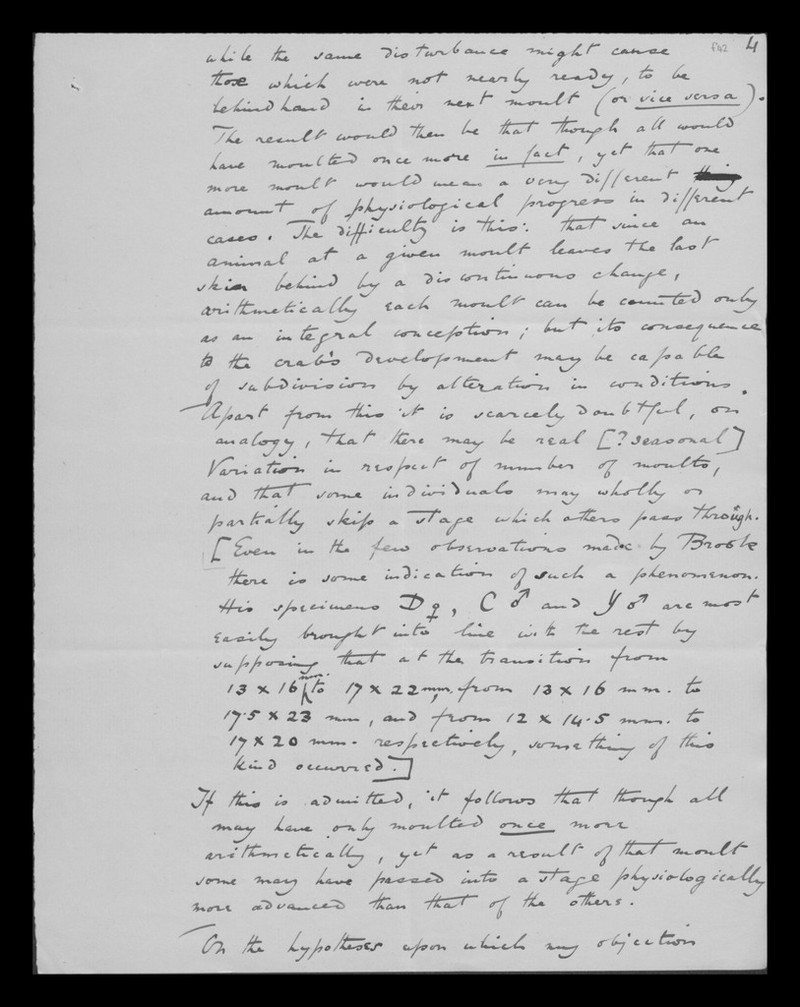 542 4
while the same disturbance might cause
those which were not nearly ready, to be
behindhand in their next moult (or vice versa).
The result would then be that though all would
have moulted once more in fact, yet that one
more moult would mean a very different thing
amount of physiological progress in different
cases. The difficulty is this: that since an
animal at a given moult leaves the last
skin behind by a discontinuous change,
arithmetically each moult can be counted only
as an integral conception; but its consequence
to the crab's development may be capable
of subdivision by alteration in conditions.
Apart from this it is scarcely doubtful, on
analogy, that there may be real [? seasonal]
Variation in respect of number of moults,
and that some individuals may wholly or
partially skip a stage which others pass through.
[Even in the few observations made by Brook
there is some indication of such a phenomenon.
His specimens D♀, C♂ and Y♂ are most
easily brought into line with the rest by
supposing that at the transition from
13 x 16 mm. to 17 x 22 mm, from 13 x 16 mm. to
17.5 x 23 mm, and from 12 x 14.5 mm. to
17 x 20 mm. respectively, something of this
kind occurred.]
If this is admitted, it follows that though all
may have only moulted once more
arithmetically, yet as a result of that moult
some may have passed into a stage physiologically
more advanced than that of the others.
On the hypotheses upon which my objection